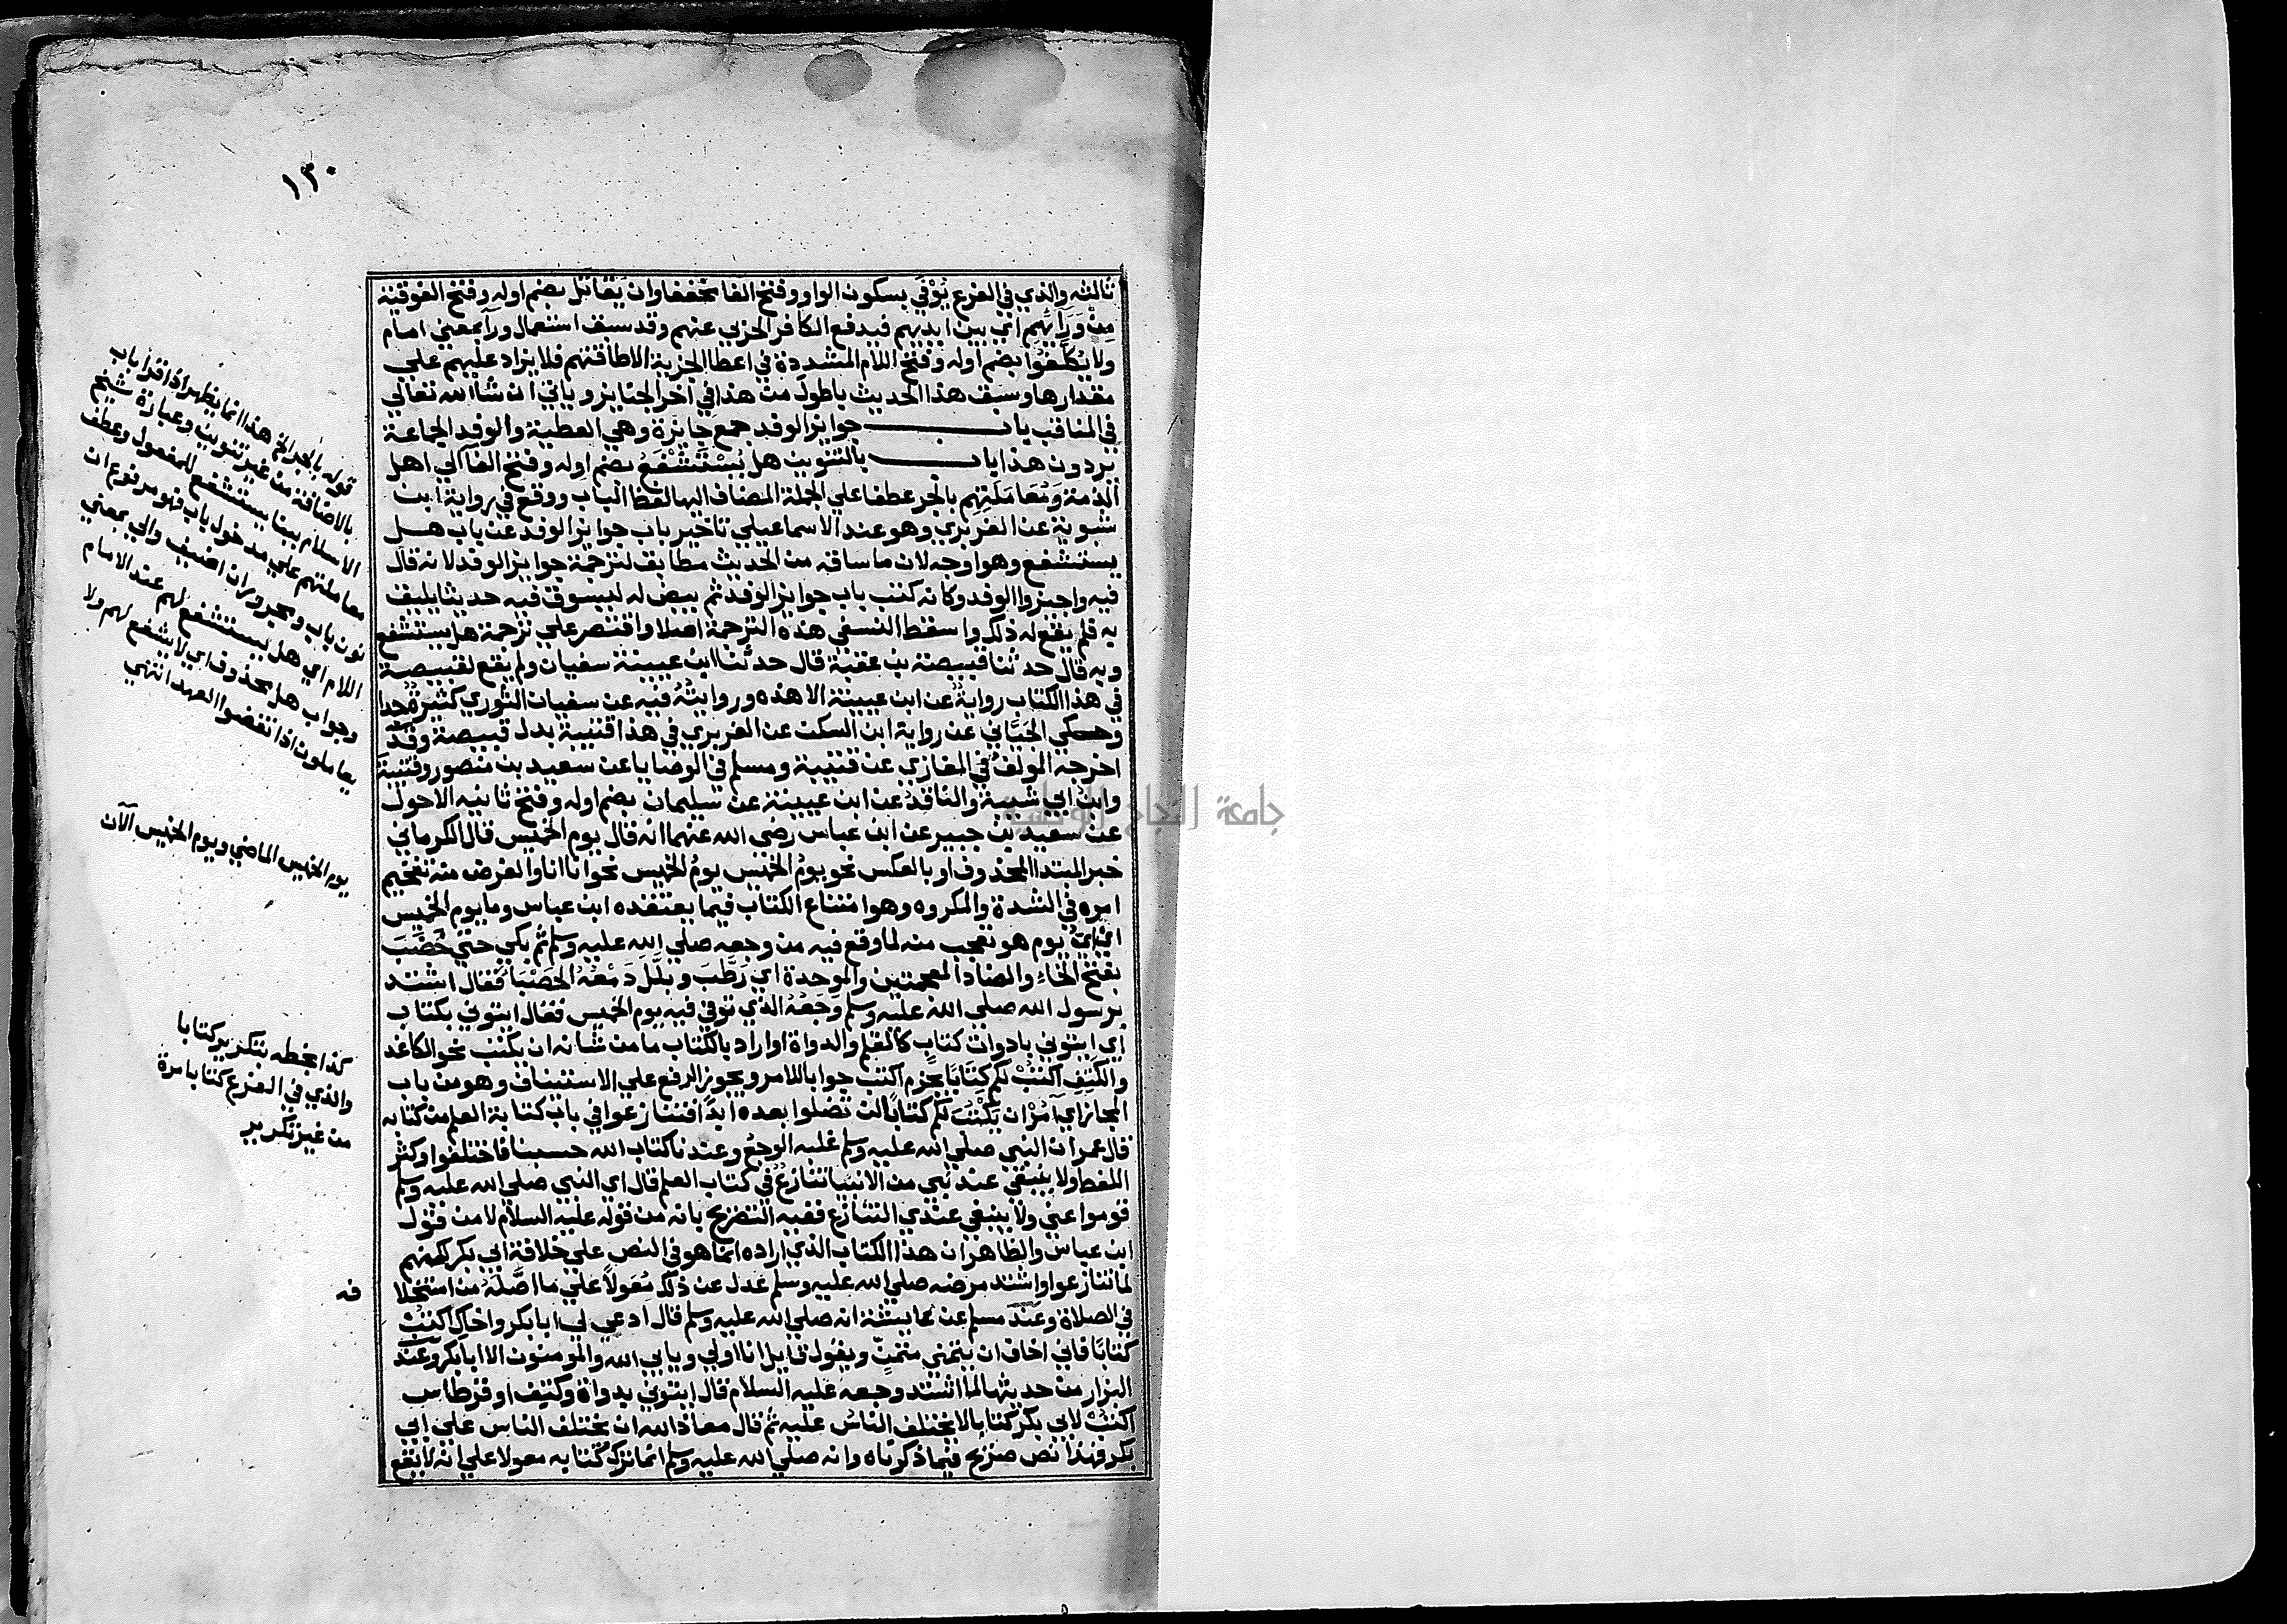 ١٣٠
ثالثه والذي في الفرع يُوْفَي بسكون الواو وفتح الفا مخففا وان يقاتل بضم اوله وفتح الفوقية
مِن وَرَايِهم اي بين ايديهم فيدفع الكافر الحربي عنهم وقد سبق استعمال ورا بمعني امام
ولا يُكلَّفُوا بضم اوله وفتح اللام المشددة في اعطا الجزية الا طاقتهم فلا يزاد عليهم علي
مقدارها وسبق هذا الحديث باطول من هذا في اخر الجنايز وياتي ان شا الله تعالي
في المناقب باب جوايز الوفد جمع جايزة وهي العطية والوفد الجماعة
يردون هذا باب بالتنوين هل يُسْتَشْفَعُ بضم اوله وفتح الفا الي اهل
الذمة وَمُعَامَلَتِهم بالجر عطفا علي الجملة المضاف اليها لفظ الباب ووقع في رواية ابن
شبوية عن الفربري وهو عند الاسماعيلي تاخير باب جوايز الوفد عن باب هل
يستشفع وهو اوجه لان ما ساقه من الحديث مطابق لترجمة جوايز الوفد لانه قال
فيه واجيزوا الوفد وكانه كتب باب جوايز الوفد ثم بيض له ليسوق فيه حديثا يليق
به فلم يقع له ذلك واسقط النسفي هذه الترجمة اصلا واقتصر علي ترجمة هل يستشفع
وبه قال حدثنا قبيصة بن عقبة قال حدثنا ابن عيينة سفيان ولم يقع لقبيصة
في هذا الكتاب رواية عن ابن عيينة الا هذه وروايتُهُ فيه عن سفيان الثوري كثيرة جدا
وحكي الجَيَّاني عن رواية ابن السكن عن الفربري في هذا قتيبة بدل قبيصة وقد
اخرجه المولف في المغازي عن قتيبة ومسلم في الوصايا عن سعيد بن منصور وقتيبة
وابن ابي شيبة والناقد عن ابن عيينة عن سليمان بضم اوله وفتح ثانيه الاحول
عن سعيد بن جبير عن ابن عباس رضي الله عنهما انه قال يوم الخميس قال الكرماني
خبر المبتدا المحذوف او بالعكس نحو يومُ الخميس يومُ الخميس نحو انا انا والغرض منه تفخيم
امره في الشدة والمكروه وهو امتناع الكتاب فيما يعتقده ابن عباس وما يوم الخميس
اي ايّ يوم هو تعجب منه لما وقع فيه من وجعه صلي الله عليه وسلم ثم بكي حتي خَضَبَ
بفتح الخاءِ والضاد المعجمتين والموحدة اي رَطَّبَ وبلَّل دَمْعُهُ الحَصْبَا فقال اشتد
برسول الله صلي الله عليه وسلم وَجَعُهُ الذي توفي فيه يوم الخميس فقال ايتوني بكتاب
اي ايتوني بادوات كتاب كالقلم والدواة او اراد بالكتاب ما من شانه ان يكتب نحو الكاغد
والكَتِف اكتبْ لكم كتابا بجزم اكتب جوابا للامر ويجوز الرفع علي الاستيناف وهو من باب
المجاز اي آمُرُ ان يَكْتُبَ لكم كتابا لن تضلوا بعده ابدًا فتنازعوا في باب كتابة العلم من كتابه
قال عمر ان النبي صلي الله عليه وسلم غلبه الوجع وعندنا كتاب الله حسبنا فاختلفوا وكثر
اللغط ولا ينبغي عند نبي من الانبيا تنازعٌ في كتاب العلم قال اي النبي صلي الله عليه وسلم
قوموا عني ولا ينبغي عندي التنازع ففيه التصريح بانه من قوله عليه السلام لا من قول
ابن عباس والظاهر ان هذا الكتاب الذي اراده انما هو في النص علي خلافة ابي بكر لكنهم
لما تنازعوا واشتد مرضه صلي الله عليه وسلم عَدل عن ذلك مُعَولاً علي ما اَصَّلَهُ من استخلا
فه
في الصلاة وعند مسلم عن عايشة انه صلي الله عليه وسلم قال ادعي لي ابا بكر واخاكِ اكتبْ
كتابًا فاني اخاف ان يتمني متمنٍّ ويقول قايل انا اولي ويابي الله والمومنون الا ابا بكر وعند
البزار من حديثها لما اشتد وجعه عليه السلام قال ايتوني بدواة وكتف او قرطاس
اكتبْ لابي بكر كتابا لا يختلف الناس عليه ثم قال معاذ الله ان يختلف الناس علي ابي
بكر فهذا نص صريح فيما ذكرناه وانه صلي الله عليه وسلم انما ترك كتابه معولا علي انه لا يقع
قوله بالجر الخ هذا انما يظهر اذا قرا باب
بالاضافة من غير تنوين وعبارة شيخ
الاسلام ببنا يستشفع للمفعول وعطف
معاملتهم علي مدخول باب فهو مرفوع ان
نون باب ومجرور ان اضيف والي بمعني
اللام اي هل يستشفع لهم عند الامام
وجواب هل محذوف اي لا يشفع لهم ولا
يعاملون اذا نقضوا العهد انتهي
يوم الخميس الماضي ويوم الخميس الآن
كذا بخطه بتكرير كتابا
والذي في الفرع كتابا مرة
من غير تكرير
جامعة النجاح الوطنية